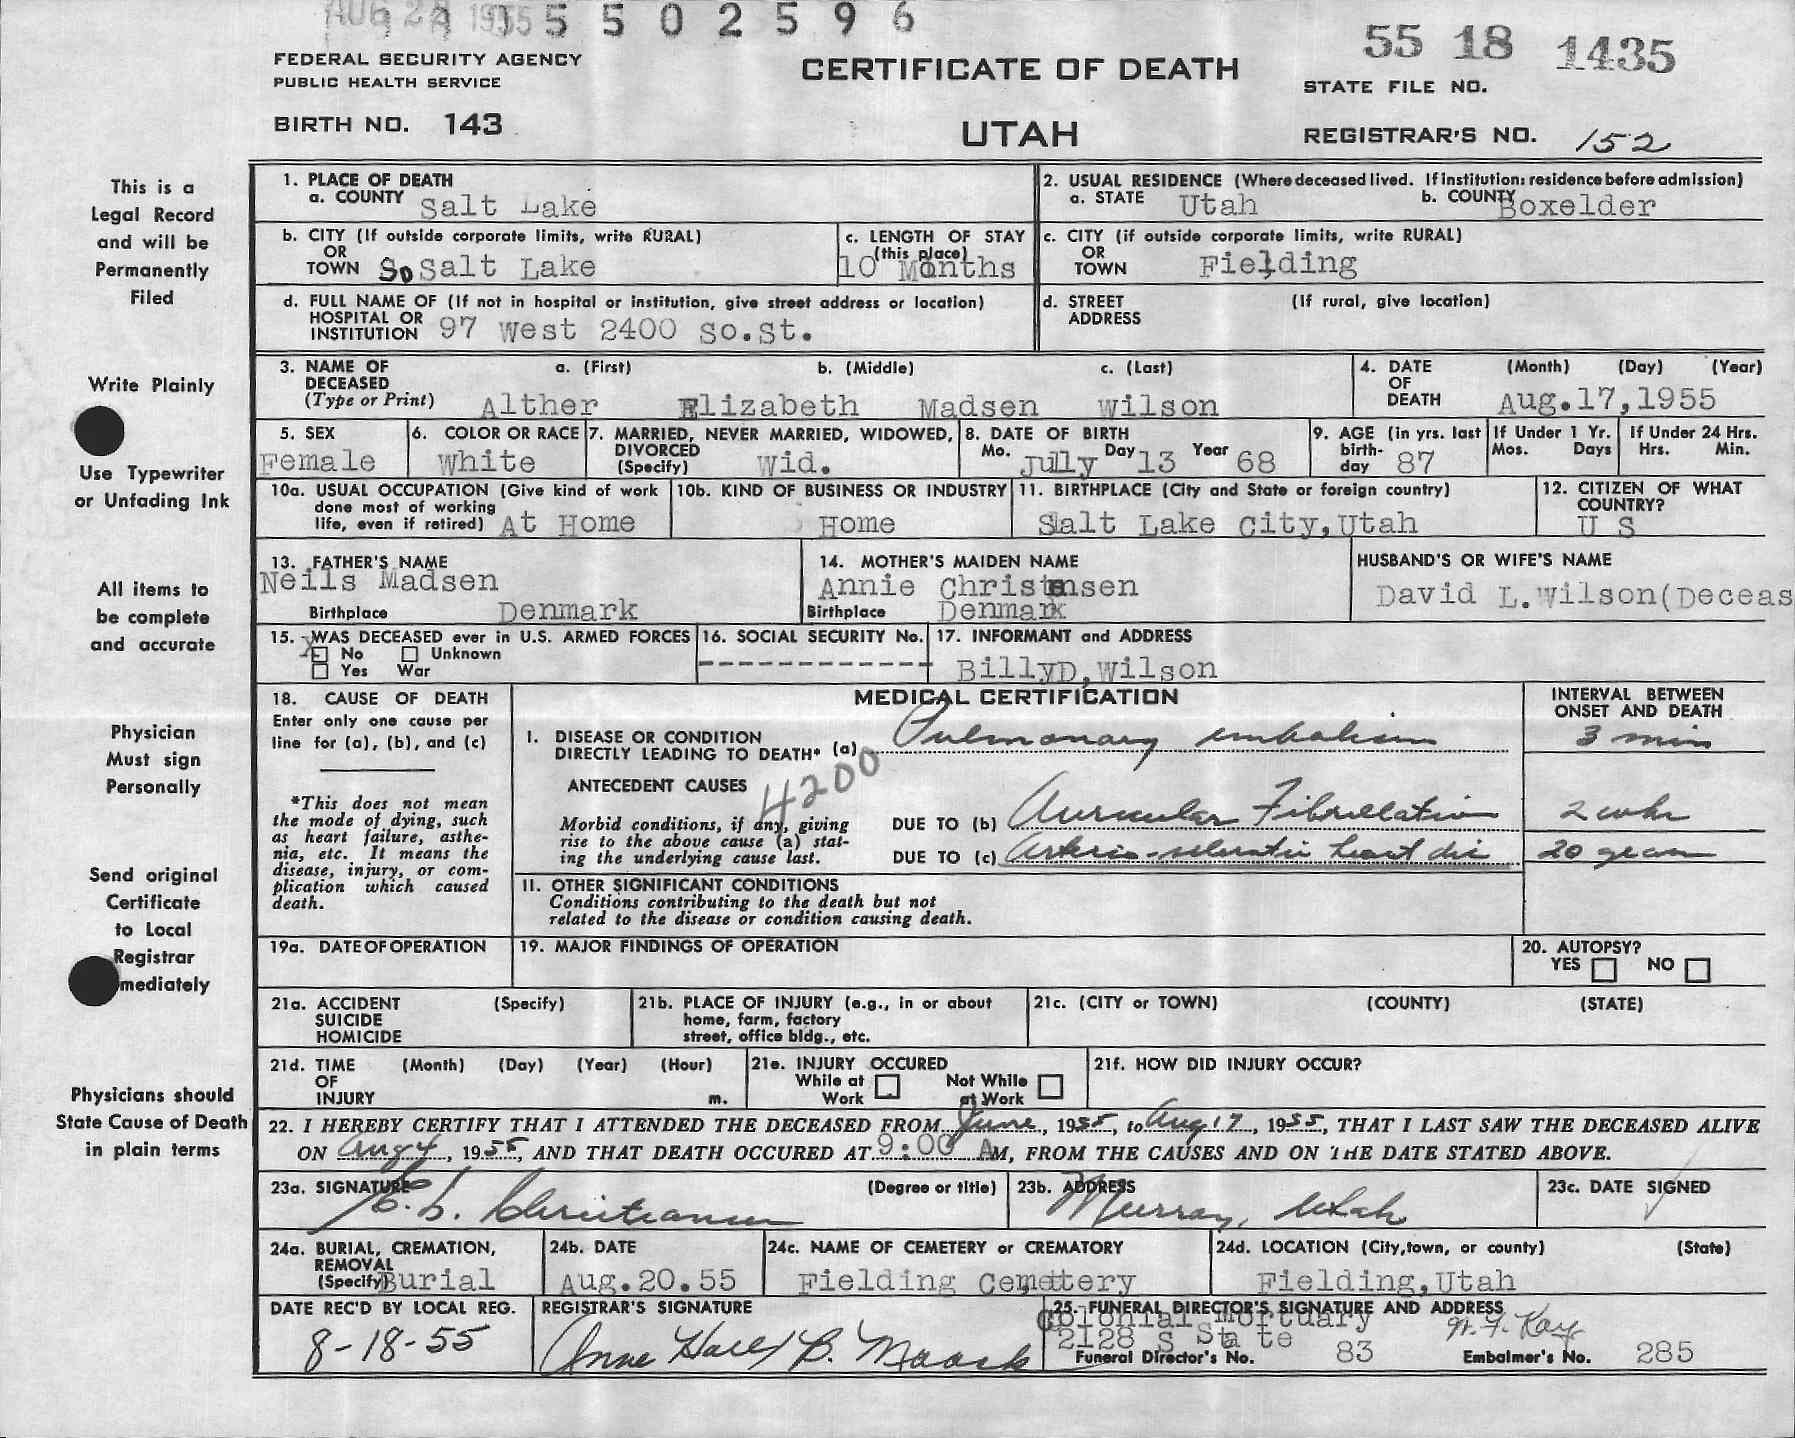 AUG 24 1955 5502596
55 18 1435
FEDERAL SECURITY AGENCY
PUBLIC HEALTH SERVICE
CERTIFICATE OF DEATH
STATE FILE NO.
BIRTH NO. 143
UTAH
REGISTRAR'S NO. 152
This is a
Legal Record
and will be
Permanently
Filed
Write Plainly
Use Typewriter
or Unfading Ink
All items to
be complete
and accurate
Physician
Must sign
Personally
Send original
Certificate
to Local
Registrar
mediately
Physicians should
State Cause of Death
in plain terms
1. PLACE OF DEATH
a. COUNTY Salt Lake
2. USUAL RESIDENCE (Where deceased lived. If institution: residence before admission)
a. STATE Utah b. COUNTY Boxelder
b. CITY (If outside corporate limits, write RURAL)
OR
TOWN So Salt Lake
c. LENGTH OF STAY
(this place)
10 Months
c. CITY (if outside corporate limits, write RURAL)
OR
TOWN Fielding
d. FULL NAME OF (If not in hospital or institution, give street address or location)
HOSPITAL OR
INSTITUTION 97 West 2400 So.St.
d. STREET (If rural, give location)
ADDRESS
3. NAME OF a. (First) b. (Middle) c. (Last)
DECEASED
(Type or Print) Alther Elizabeth Madsen Wilson
4. DATE (Month) (Day) (Year)
OF
DEATH Aug.17,1955
5. SEX
Female
6. COLOR OR RACE
White
7. MARRIED, NEVER MARRIED, WIDOWED,
DIVORCED
(Specify) Wid.
8. DATE OF BIRTH
Mo. Jully Day 13 Year 68
9. AGE (in yrs. last
birth-
day 87
If Under 1 Yr.
Mos. Days
If Under 24 Hrs.
Hrs. Min.
10a. USUAL OCCUPATION (Give kind of work
done most of working
life, even if retired) At Home
10b. KIND OF BUSINESS OR INDUSTRY
Home
11. BIRTHPLACE (City and State or foreign country)
Salt Lake City,Utah
12. CITIZEN OF WHAT
COUNTRY?
U S
13. FATHER'S NAME
Neils Madsen
Birthplace Denmark
14. MOTHER'S MAIDEN NAME
Annie Christensen
Birthplace Denmark
HUSBAND'S OR WIFE'S NAME
David L.Wilson(Deceas
15. WAS DECEASED ever in U.S. ARMED FORCES
X No Unknown
Yes War
16. SOCIAL SECURITY No.
------------
17. INFORMANT and ADDRESS
BillyD,Wilson
18. CAUSE OF DEATH
Enter only one cause per
line for (a), (b), and (c)
*This does not mean
the mode of dying, such
as heart failure, asthe-
nia, etc. It means the
disease, injury, or com-
plication which caused
death.
MEDICAL CERTIFICATION
INTERVAL BETWEEN
ONSET AND DEATH
I. DISEASE OR CONDITION
DIRECTLY LEADING TO DEATH* (a) Pulmonary embolism 3 min
4200
ANTECEDENT CAUSES
Morbid conditions, if any, giving
rise to the above cause (a) stat-
ing the underlying cause last.
DUE TO (b) Auricular Fibrillation 2 wks
DUE TO (c) Arterio-sclerotic heart dis 20 years
II. OTHER SIGNIFICANT CONDITIONS
Conditions contributing to the death but not
related to the disease or condition causing death.
19a. DATE OF OPERATION
19. MAJOR FINDINGS OF OPERATION
20. AUTOPSY?
YES NO
21a. ACCIDENT (Specify)
SUICIDE
HOMICIDE
21b. PLACE OF INJURY (e.g., in or about
home, farm, factory
street, office bldg., etc.
21c. (CITY or TOWN) (COUNTY) (STATE)
21d. TIME (Month) (Day) (Year) (Hour)
OF
INJURY m.
21e. INJURY OCCURED
While at Work Not While at Work
21f. HOW DID INJURY OCCUR?
22. I HEREBY CERTIFY THAT I ATTENDED THE DECEASED FROM June, 1955, to Aug 17, 1955, THAT I LAST SAW THE DECEASED ALIVE
ON Aug 4, 1955, AND THAT DEATH OCCURED AT 9:00 AM, FROM THE CAUSES AND ON THE DATE STATED ABOVE.
23a. SIGNATURE (Degree or title)
Christiansen
23b. ADDRESS
Murray, Utah
23c. DATE SIGNED
24a. BURIAL, CREMATION,
REMOVAL
(Specify) Burial
24b. DATE
Aug.20.55
24c. NAME OF CEMETERY or CREMATORY
Fielding Cemetery
24d. LOCATION (City, town, or county) (State)
Fielding,Utah
DATE REC'D BY LOCAL REG.
8-18-55
REGISTRAR'S SIGNATURE
Anne
25. FUNERAL DIRECTOR'S SIGNATURE AND ADDRESS
Colonial Mortuary
2128 S State
W. F. Kay
Funeral Director's No. 83 Embalmer's No. 285